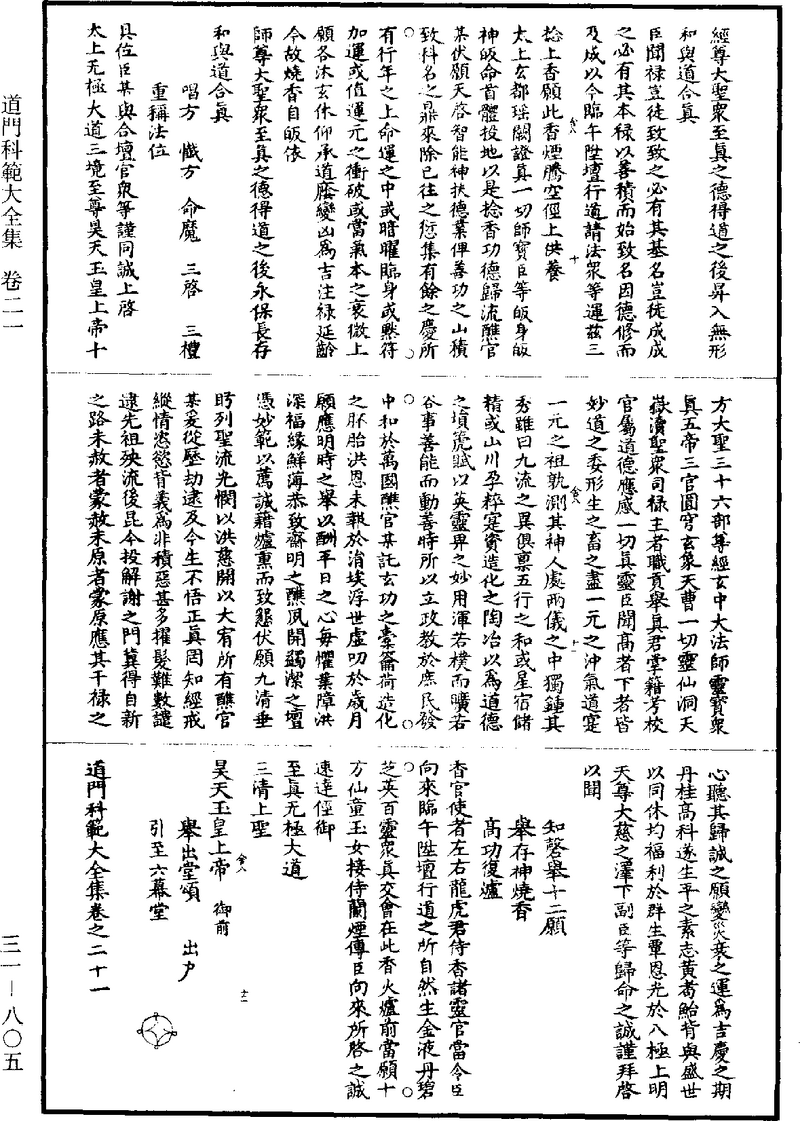 道門科範大全集 卷二一
三一－八〇五
經尊大聖衆至真之德得道之後昇入無形
和與道合真
臣聞祿豈徒致致之必有其基名豈徒成成
之必有其本祿以善積而始致名因德修而
及成以今臨午陞壇行道請法衆等運茲三
捻上香願此香煙騰空徑上供養
太上玄都瑤闕證真一切師寶臣等皈身皈
神皈命首體投地以是捻香功德歸流醮官
某伏願天啓智能神扶德業俾善功之山積
致科名之鼎來除已往之愆集有餘之慶所
有行年之上命運之中或暗曜臨身或黙符
加運或值運元之衝破或當氣本之衰微上
願各沐玄休仰承道廕變凶爲吉注祿延齡
今故燒香自皈依
師尊大聖衆至真之德得道之後永保長存
和與道合真
唱方 懺方 命魔 三啓 三禮
重稱法位
具位臣某與合壇官衆等謹同誠上啓
太上无極大道三境至尊昊天玉皇上帝十
方大聖三十六部尊經玄中大法師靈寶衆
真五帝三官圓穹玄象天曹一切靈仙洞天
嶽瀆聖衆司祿主者職貢舉真君掌籍考校
官屬道德應感一切真靈臣聞高者下者皆
妙道之委形生之畜之盡一元之沖氣道寔
一元之祖孰測其神人處兩儀之中獨鍾其
秀雖曰九流之異俱稟五行之和或星宿儲
精或山川孕粹寔資造化之陶冶以爲道德
之塤箎賦以英靈畀之妙用渾若樸而曠若
谷事善能而動善時所以立政教於庶民發
中和於萬國醮官某託玄功之橐籥荷造化
之胚胎洪恩未報於涓埃浮世虛叨於歲月
願應明時之舉以酬平日之心每懼業障洪
深福緣鮮薄恭致齋明之醮夙開蠲潔之壇
憑妙範以薦誠藉爐熏而致懇伏願九清垂
眄列聖流光憫以洪慈開以大宥所有醮官
某爰從歷劫逮及今生不悟正真罔知經戒
縱情恣慾背義爲非積惡甚多擢髮難數譴
逮先祖殃流後昆今投解謝之門冀得自新
之路未赦者蒙赦未原者蒙原應其干祿之
心聽其歸誠之願變災衰之運爲吉慶之期
丹桂高科遂生平之素志黃耇鮐背與盛世
以同休均福利於群生覃恩光於八極上明
天尊大慈之澤下副臣等歸命之誠謹拜啓
以聞
知磬舉十二願
舉存神燒香
高功復爐
香官使者左右龍虎君侍香諸靈官當令臣
向來臨午陞壇行道之所自然生金液丹碧
芝英百靈衆真交會在此香火爐前當願十
方仙童玉女接侍蘭煙傳臣向來所啓之誠
速達徑御
至真无極大道
三清上聖
昊天玉皇上帝 御前
舉出堂頌 出戶
引至六幕堂
道門科範大全集卷之二十一